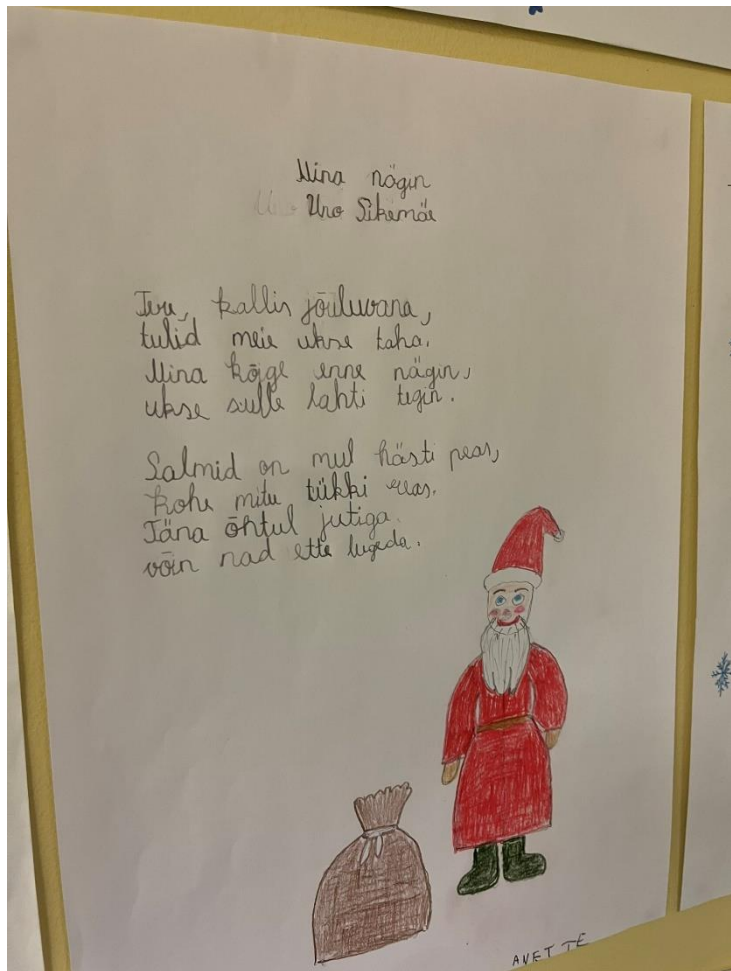 Mina nägin
Uno Sikemäe
Tere, kallis jõuluvana,
tulid meie ukse taha.
Mina kõige enne nägin,
ukse sulle lahti tegin.
Salmid on mul hästi peas,
kohe mitu tükki reas.
Täna õhtul jutiga
võin nad ette lugeda.
ANETTE